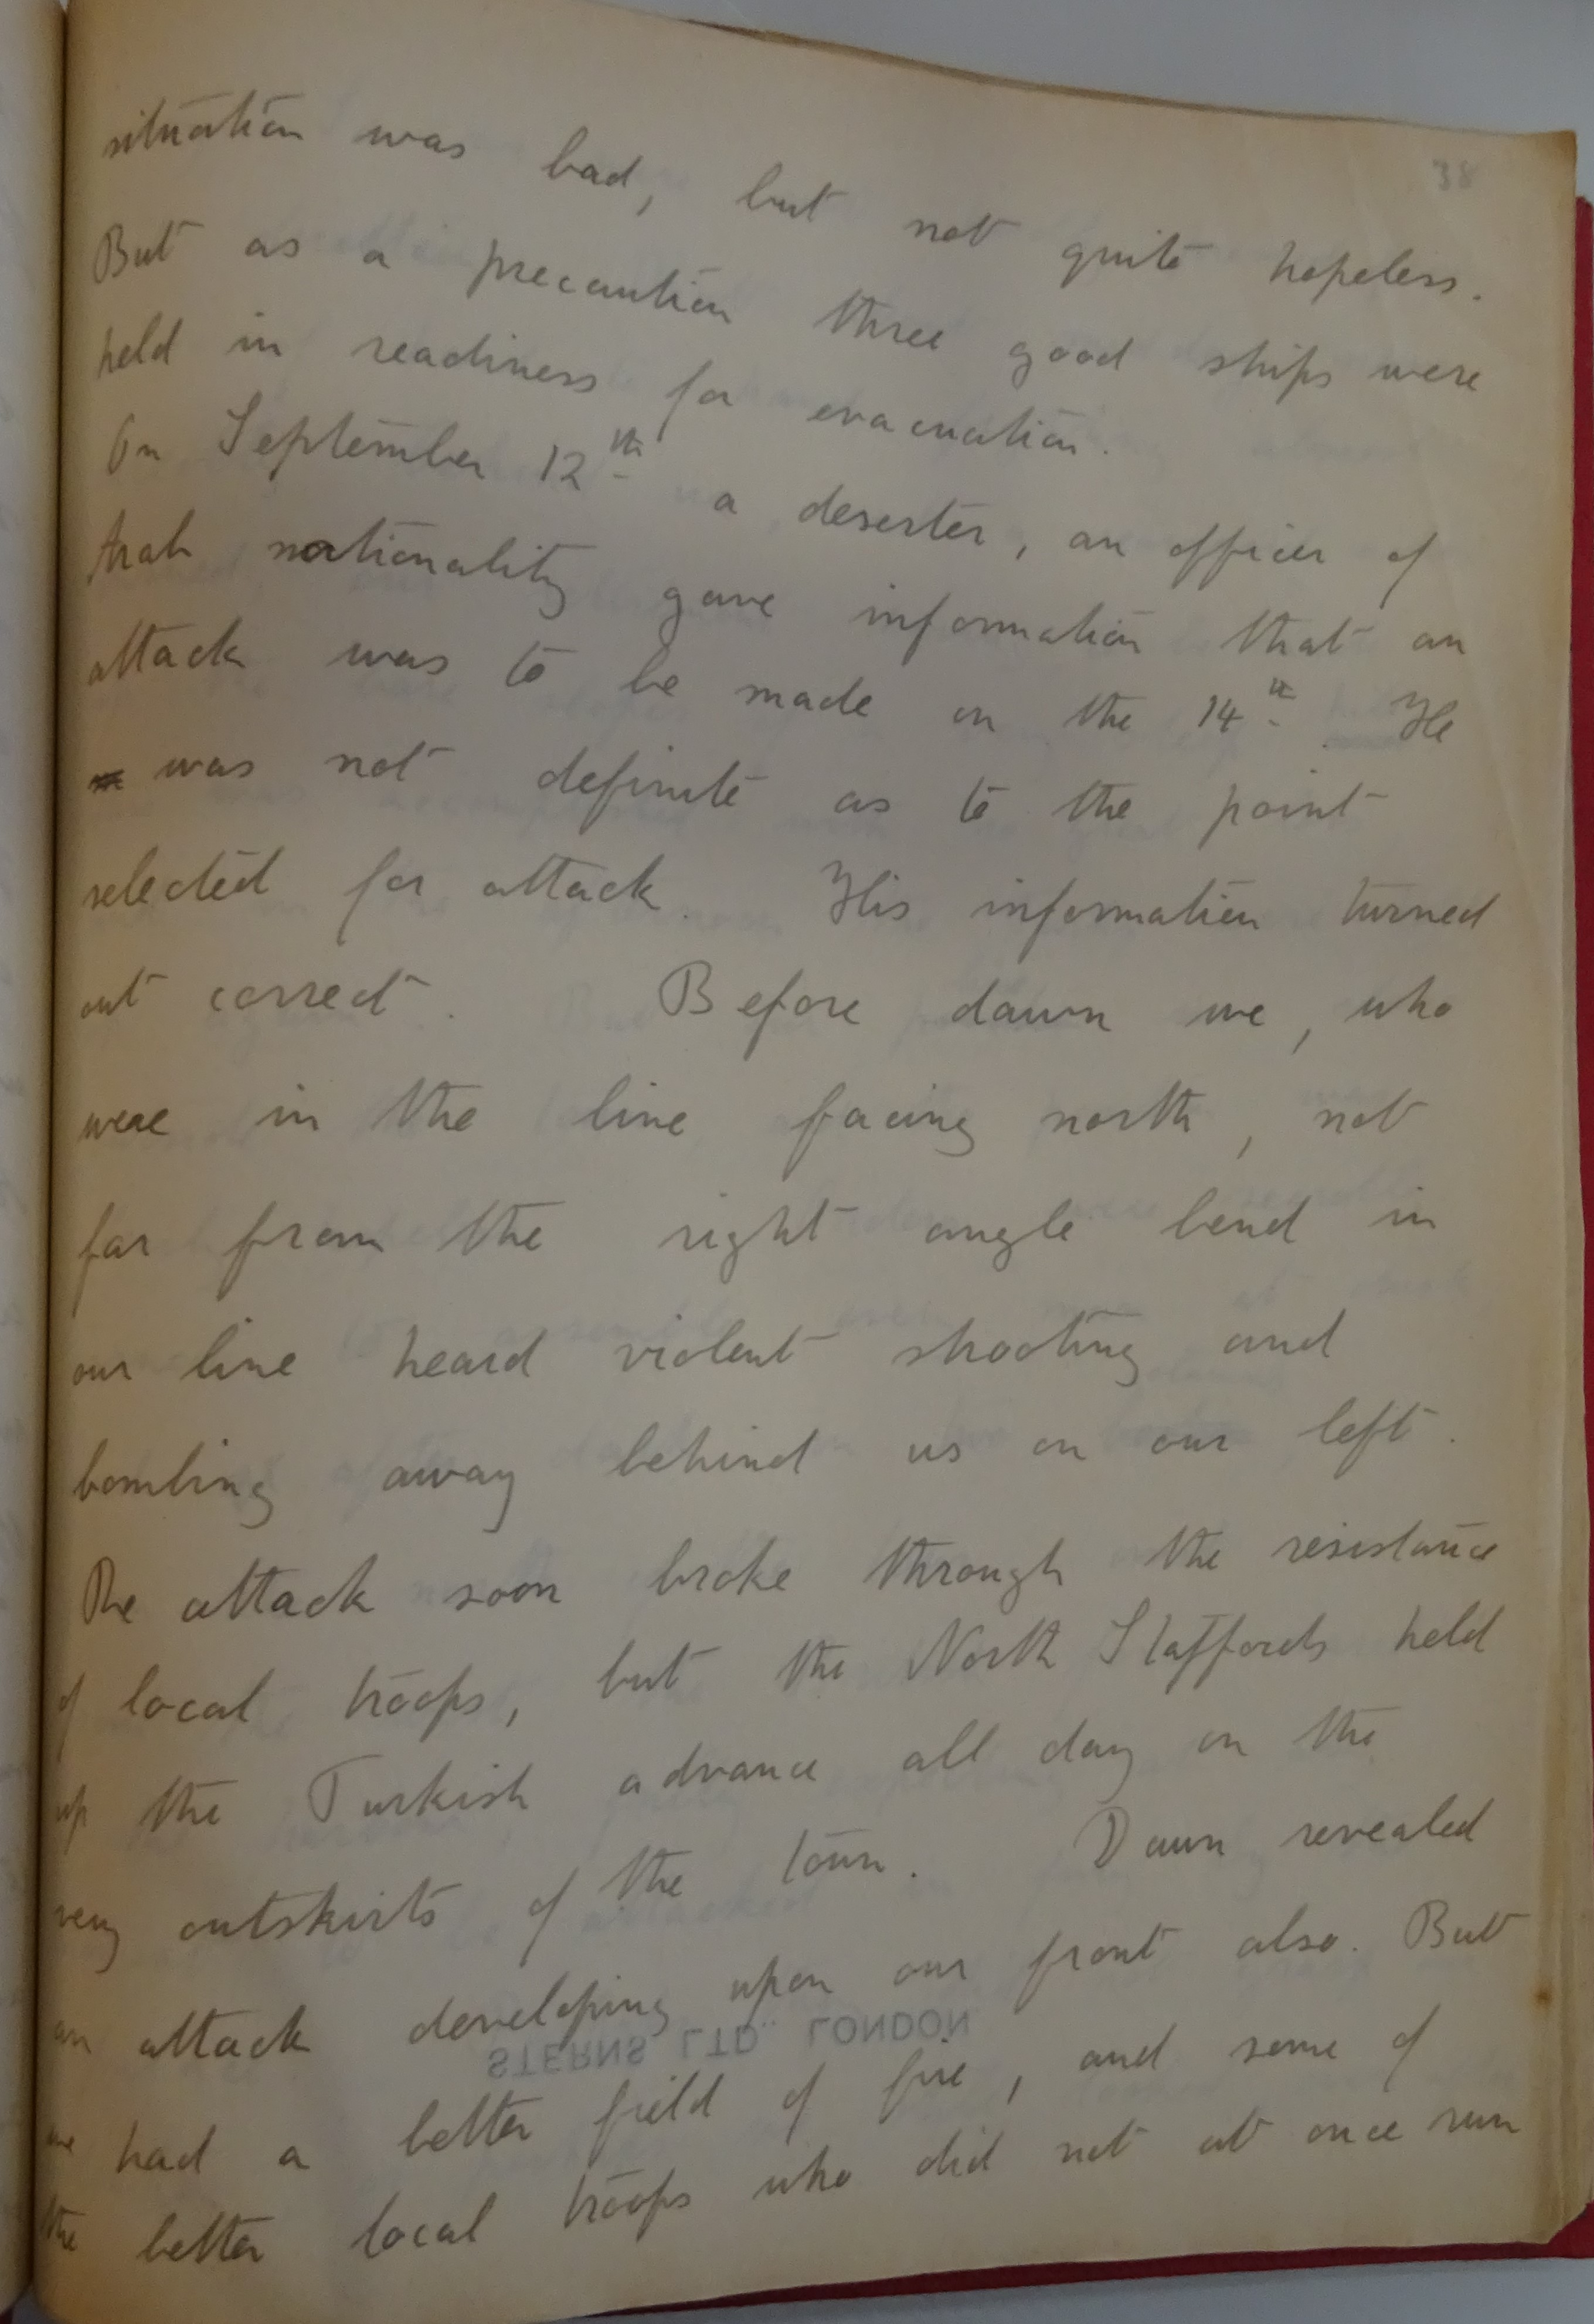 38
situation was bad, but not quite hopeless.
But as a precaution three good ships were
held in readiness for evacuation.
On September 12th a deserter, an officer of
Arab nationality gave information that an
attack was to be made on the 14th. He
was not definite as to the point
selected for attack. His information turned
out correct. Before dawn we, who
were in the line facing north, not
far from the right angle bend in
our line heard violent shooting and
bombing away behind us on our left.
The attack soon broke through the resistance
of local troops, but the North Staffords held
up the Turkish advance all day on the
very outskirts of the town. Dawn revealed
an attack developing upon our front also. But
STERNS LTD., LONDON
we had a better field of fire, and some of
the better local troops who did not at once run